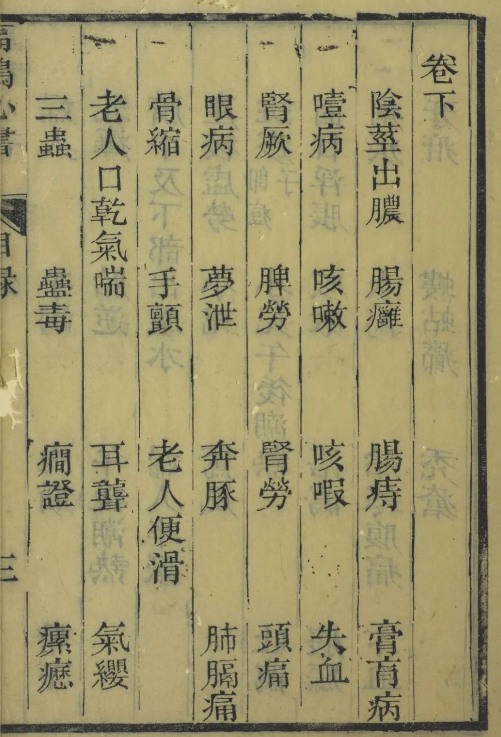 卷下
陰莖出膿　腸癰　腸痔　膏肓病
噎病　咳嗽　咳暇　失血
腎厥　脾勞　腎勞　頭痛
眼病　夢泄　奔豚　肺膈痛
骨縮　手顫　老人便滑
老人口乾氣喘　耳聾　氣纓
三蟲　蠱毒　癇證　瘰癧
心書　目録　三